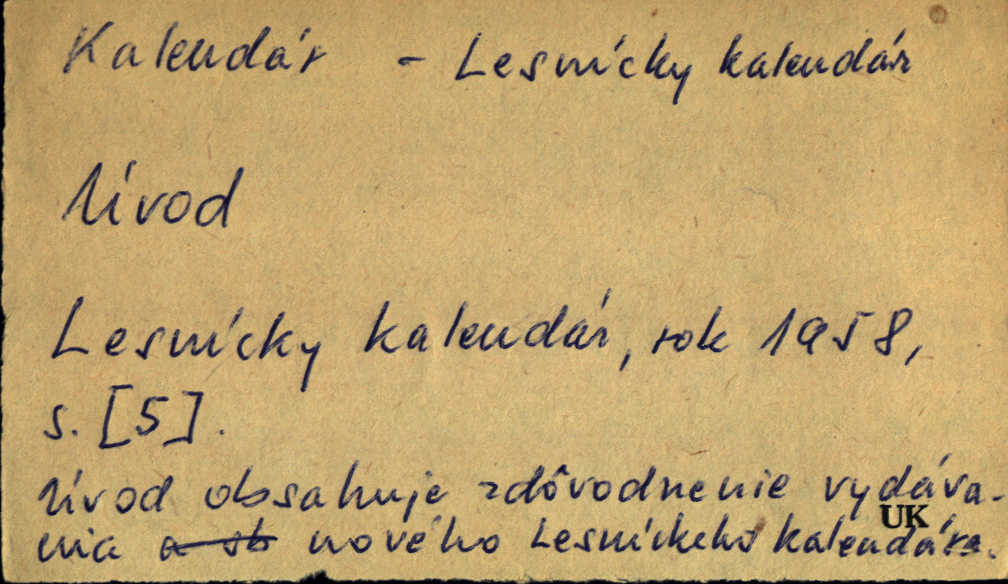 Kalendár - Lesnícky kalendár
Úvod
Lesnícky kalendár, rok 1958,
s. [5].
Úvod obsahuje zdôvodnenie vydáva-
UK
nia a sb nového Lesníckeho kalendára.